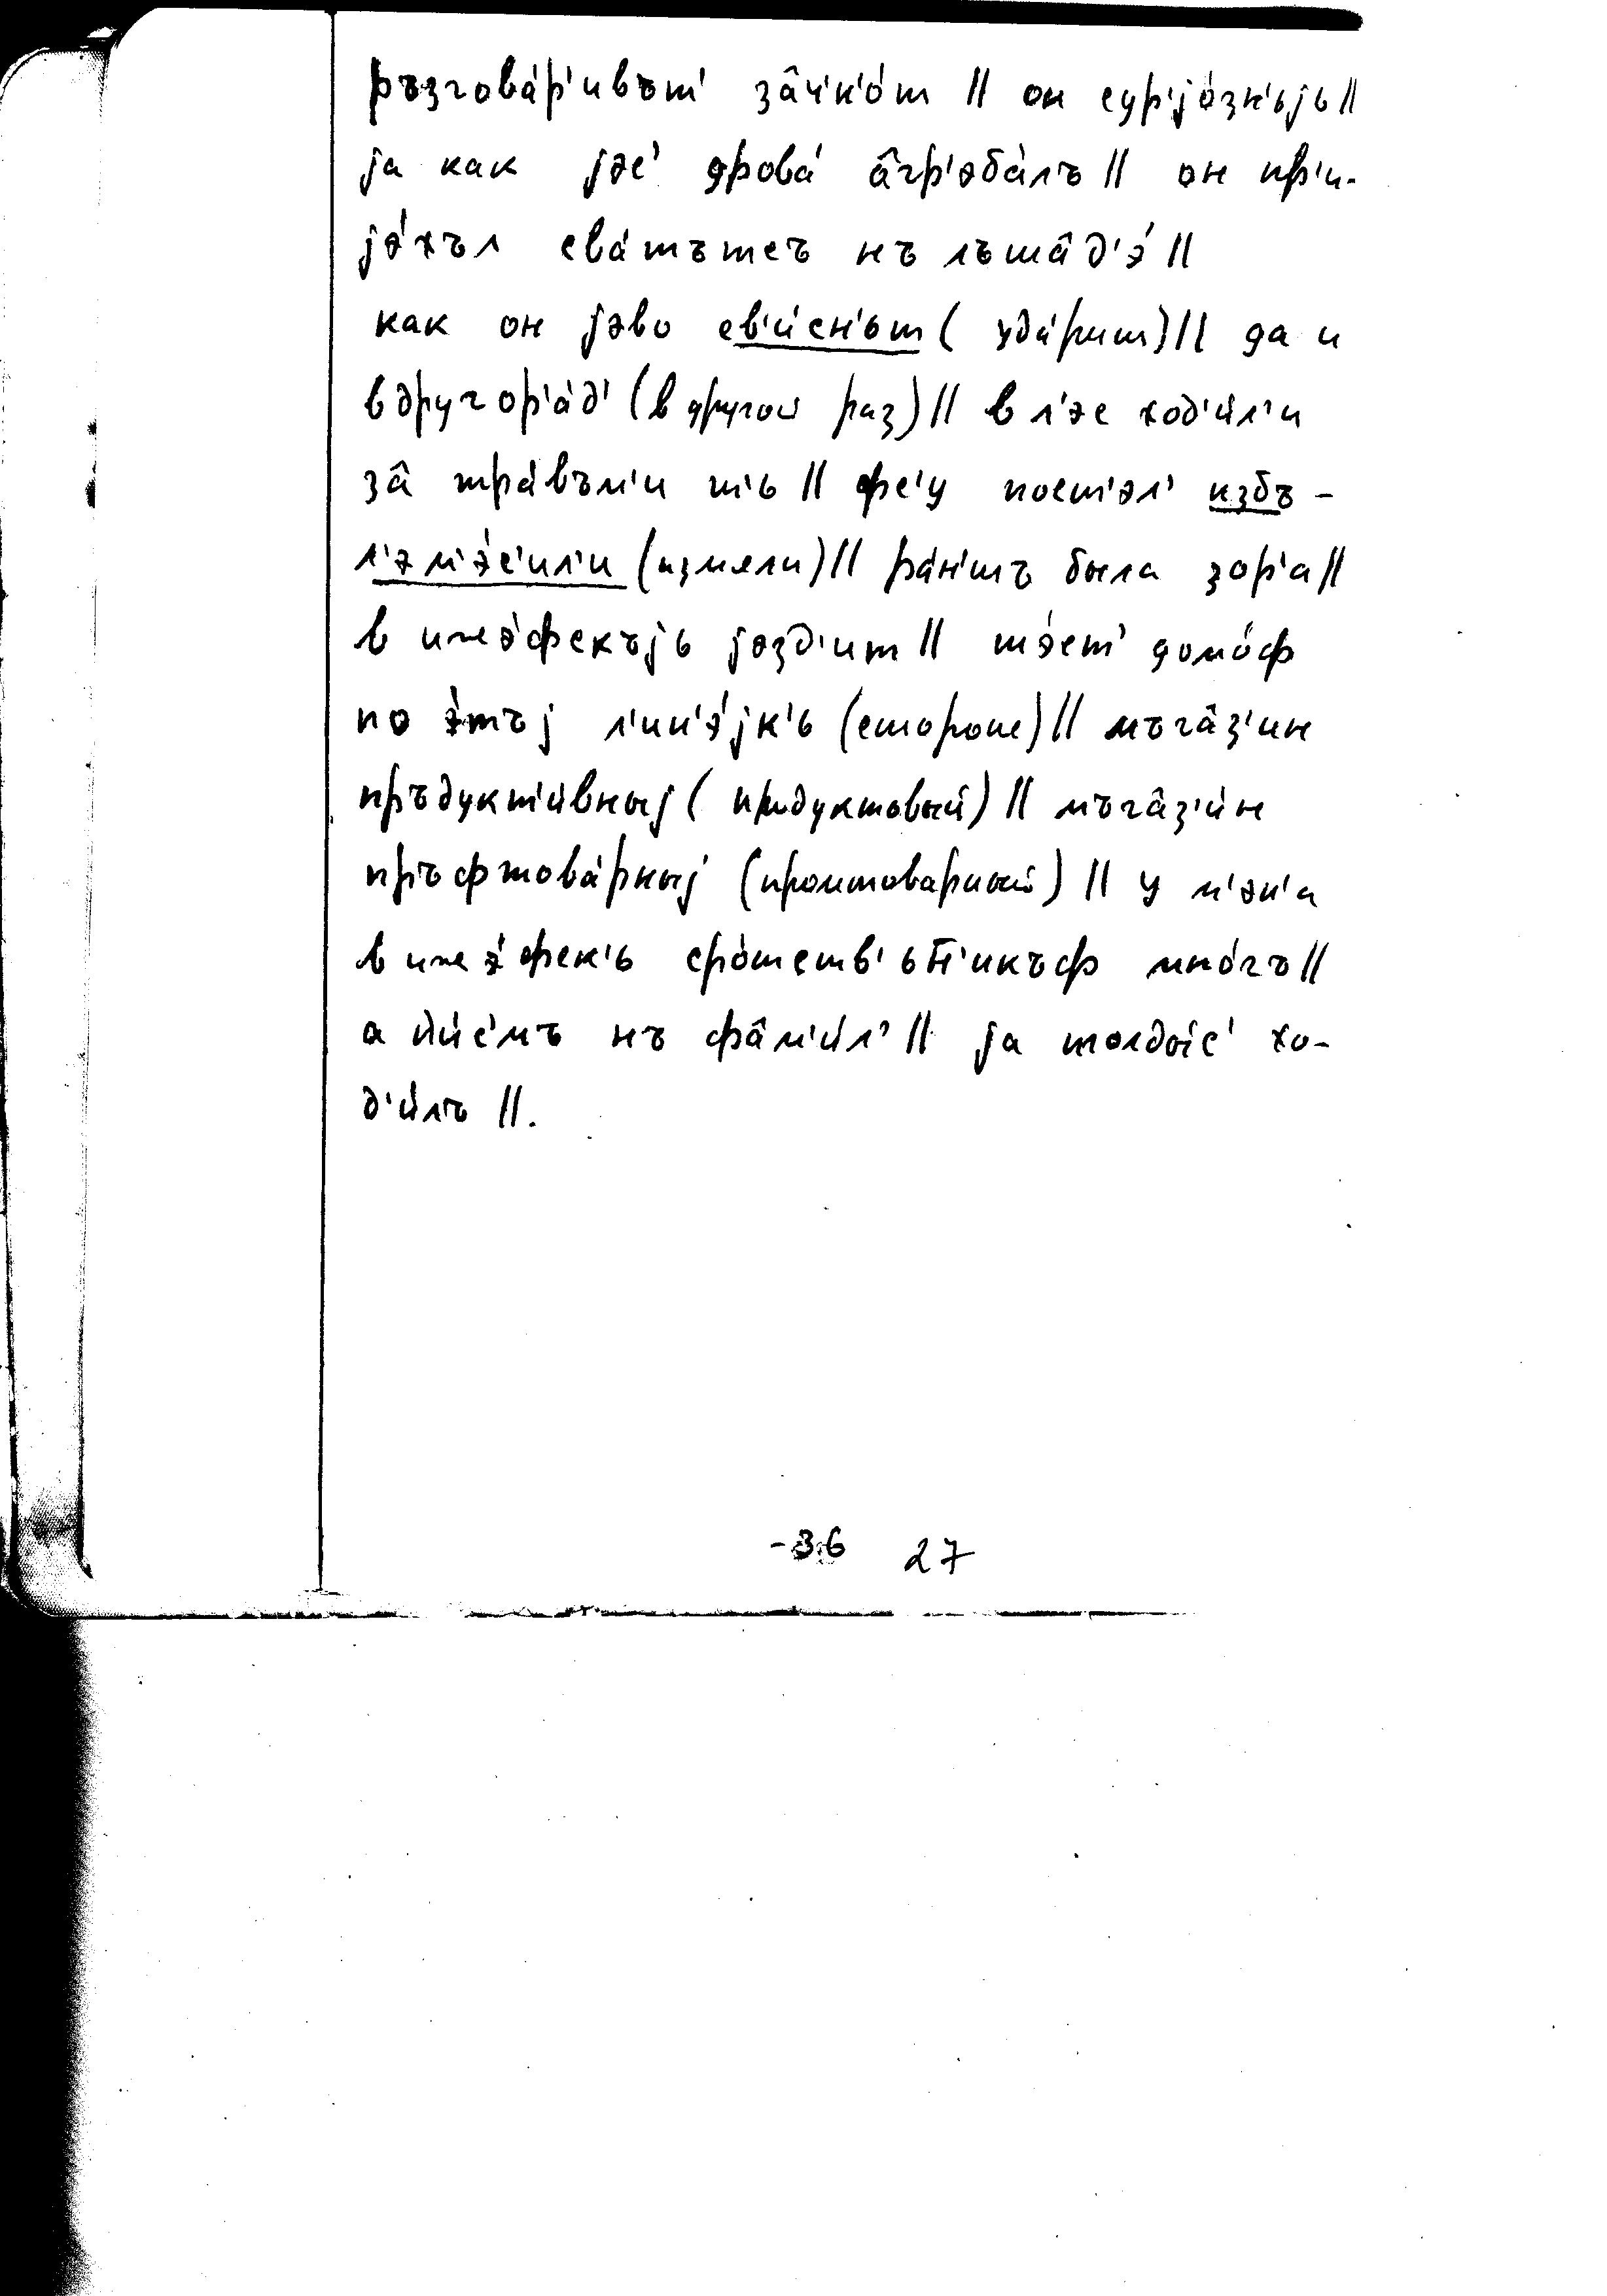 ръзгова́р'ивът' за̂ч'н'о́т || он сур'jо́зн'ъjь ||
jа как jэс' дрова́ а̂гр'эба́лъ || он пр'и-
jэ́хъл сва́тътсъ нъ лъша̂д'э́ ||
как он jэво св'и́сн'ьт (уда́рит) || да и
вдругор'а́д' (в другой раз) || в л'эс ход'и́л'и
за̂ тра́въм'и т'ь || фс'у пост'эл' избъ-
л'эм'э́с'ил'и (измяли) || ра́н'шъ была зор'а ||
в ижэ́фскъjь jэзд'ит || шэ́ст' домо́ф
по э́тъj л'ин'э́jк'ь (стороне) || мъга̂з'ин
пръдукт'и́вныj (продуктовый) || мъга̂з'и́н
пръфтова́рныj (промтоварный) || у м'эн'а
в ижэ́фск'ь сро́тств'ьн̄'икъф мно́гъ ||
а п'и́с'мъ нъ фа̂м'и́л' || jа толды́с' хо-
д'и́лъ ||.
-36 27